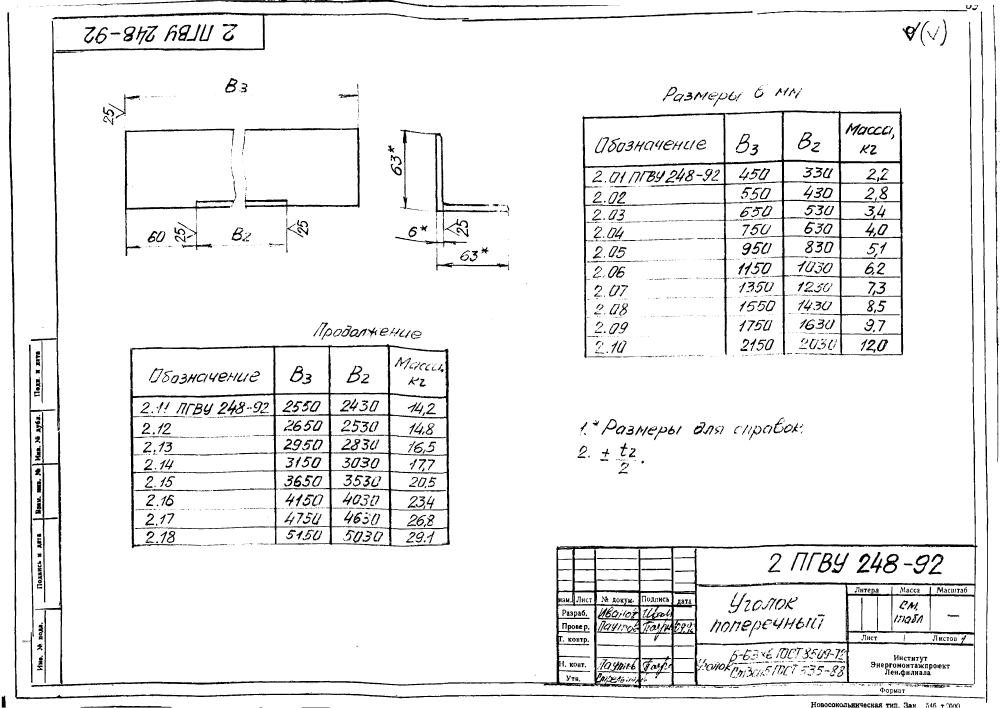 2 ПГВУ 248-92
(√)
В3
25
60
25
В2
25
63*
6*
25
63*
Размеры в мм
Обозначение В3 В2 Масса, кг
2.01 ПГВУ 248-92 450 330 2,2
2.02 550 430 2,8
2.03 650 530 3,4
2.04 750 630 4,0
2.05 950 830 5,1
2.06 1150 1030 6,2
2.07 1350 1230 7,3
2.08 1550 1430 8,5
2.09 1750 1630 9,7
2.10 2150 2030 12,0
Продолжение
Обозначение В3 В2 Масса, кг
2.11 ПГВУ 248-92 2550 2430 14,2
2.12 2650 2530 14,8
2.13 2950 2830 16,5
2.14 3150 3030 17,7
2.15 3650 3530 20,5
2.16 4150 4030 23,4
2.17 4750 4630 26,8
2.18 5150 5030 29.1
1.* Размеры для справок.
2. ± t2/2.
Подп. и дата
Инв. № дубл.
Взам. инв. №
Подпись и дата
Инв. № подл.
2 ПГВУ 248-92
Изм. Лист № докум. Подпись дата
Разраб. Иванов
Провер. Паутов
Т. контр.
Н. конт.
Утв.
Уголок
поперечный
Литера Масса Масштаб
См. табл —
Лист Листов 1
Уголок Б-63х6 ГОСТ 8509-72
Ст3сп5 ГОСТ 535-88
Институт
Энергомонтажпроект
Лен.филиала
Формат
Новосокольническая тип. Зак. 546 т.